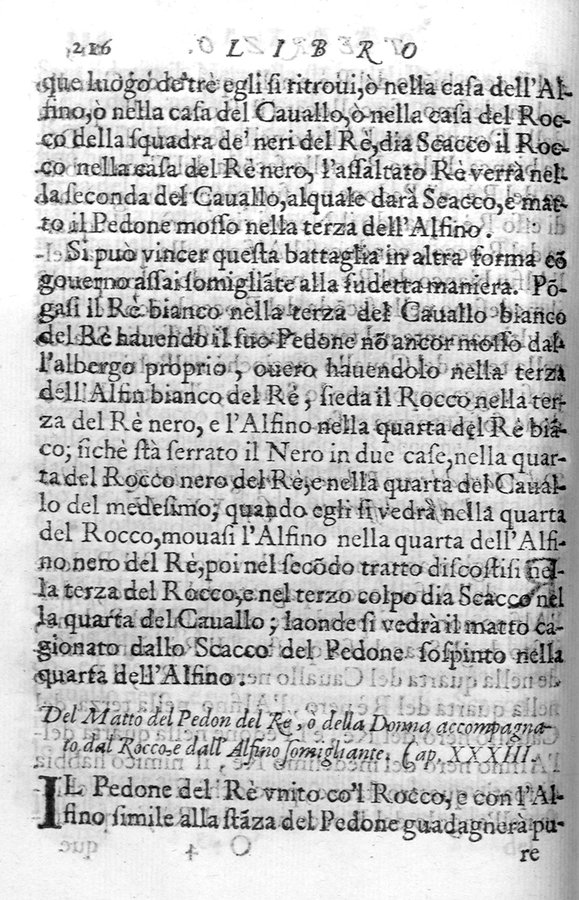 216 LIBRO
que luogo de' trè egli si ritroui, ò nella casa dell'Al-
fino, ò nella casa del Cauallo, ò nella casa del Roc-
co della squadra de' neri del Rè, dia Scacco il Roc-
co nella casa del Rè nero, l'assaltato Rè verrà nel-
la seconda del Cauallo, alquale darà Scacco, e mat-
to il Pedone mosso nella terza dell'Alfino.
Si può vincer questa battaglia in altra forma cõ
gouerno assai somigliãte alla sudetta maniera. Põ-
gasi il Rè bianco nella terza del Cauallo bianco
del Rè hauendo il suo Pedone nõ ancor mosso dal-
l'albergo proprio, ouero hauendolo nella terza
dell'Alfin bianco del Rè, sieda il Rocco nella ter-
za del Rè nero, e l'Alfino nella quarta del Rè biã-
co; sichè stà serrato il Nero in due case, nella quar-
ta del Rocco nero del Rè, e nella quarta del Caual-
lo del medesimo; quando egli si vedrà nella quarta
del Rocco, mouasi l'Alfino nella quarta dell'Alfi-
no nero del Rè, poi nel secõdo tratto discostisi nel-
la terza del Rocco, e nel terzo colpo dia Scacco nel
la quarta del Cauallo; laonde si vedrà il matto ca-
gionato dallo Scacco del Pedone sospinto nella
quarta dell'Alfino.
Del Matto del Pedon del Rè, ò della Donna accompagna-
to dal Rocco, e dall'Alfino somigliante. Cap. XXXIII.
IL Pedone del Rè vnito co'l Rocco, e con l'Al-
fino simile alla stãza del Pedone guadagnerà pu-
O 4 re